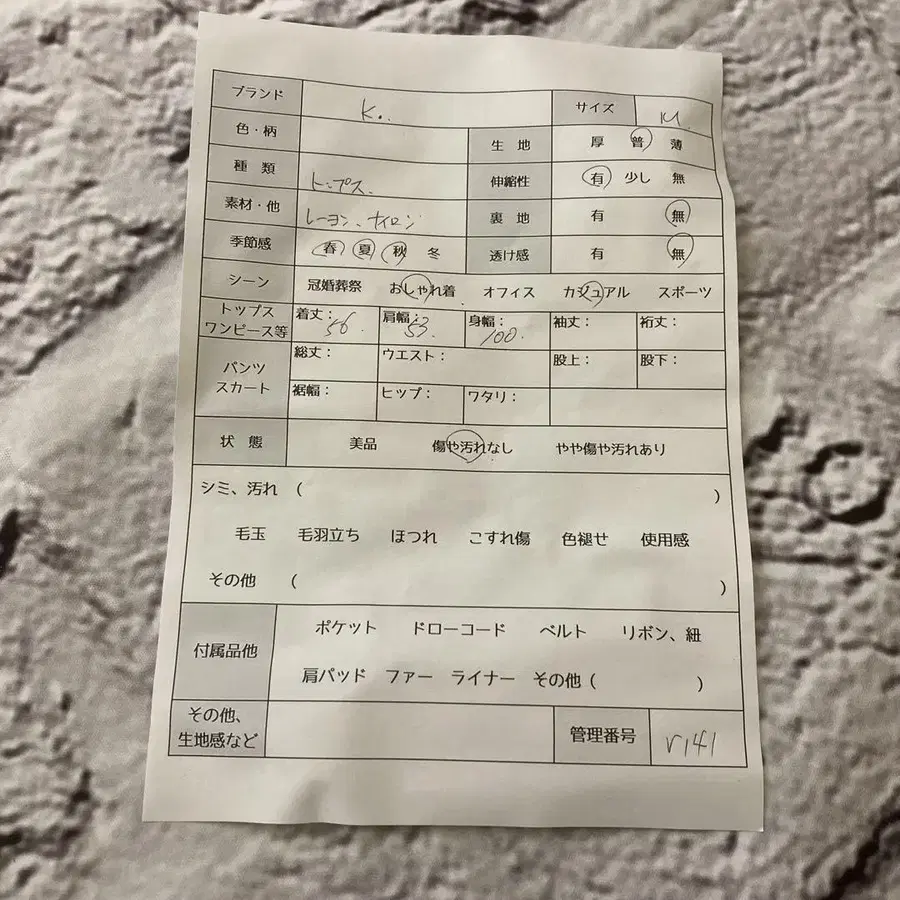 ブランド K.. サイズ M
色・柄 生地 厚 普 薄
種類 トップス. 伸縮性 有 少し 無
素材・他 レーヨン、ナイロン 裏地 有 無
季節感 春 夏 秋 冬 透け感 有 無
シーン 冠婚葬祭 おしゃれ着 オフィス カジュアル スポーツ
トップス ワンピース等 着丈: 56 肩幅: 53 身幅: 100 袖丈: 裄丈:
パンツ スカート 総丈: ウエスト: 股上: 股下:
裾幅: ヒップ: ワタリ:
状態 美品 傷や汚れなし やや傷や汚れあり
シミ、汚れ ( )
毛玉 毛羽立ち ほつれ こすれ傷 色褪せ 使用感
その他 ( )
付属品他 ポケット ドローコード ベルト リボン、紐
肩パッド ファー ライナー その他 ( )
その他、
生地感など 管理番号 r141